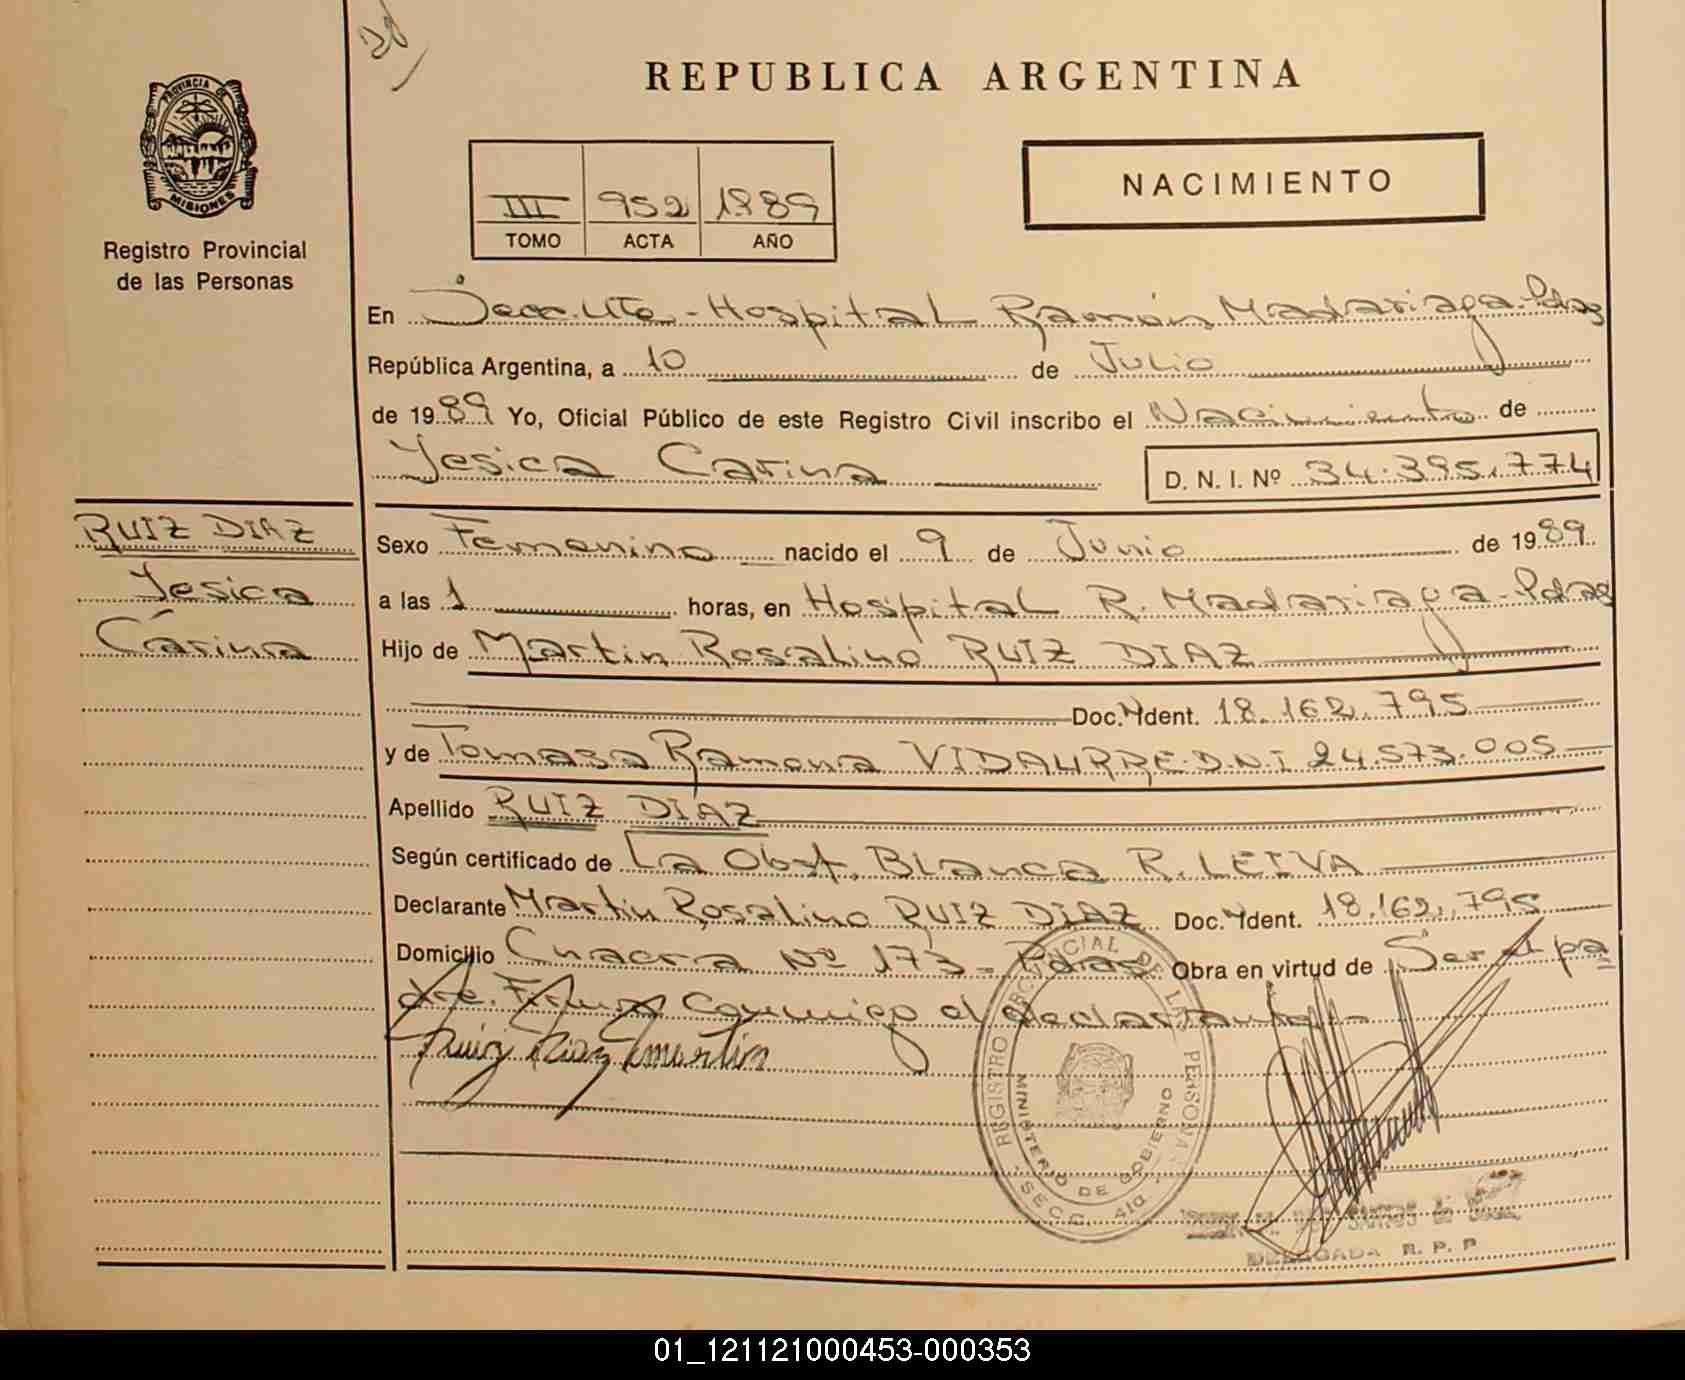 REPUBLICA ARGENTINA
PROVINCIA DE MISIONES
Registro Provincial
de las Personas
III 952 1989
TOMO ACTA AÑO
NACIMIENTO
En Secc. Hospital Ramón Madariaga-Pdas
República Argentina, a 10 de Julio
de 1989 Yo, Oficial Público de este Registro Civil inscribo el Nacimiento de
Yesica Carina D. N. I. Nº 34.395.774
RUIZ DIAZ
Yesica
Carina
Sexo Femenino nacido el 9 de Junio de 1989
a las 1 horas, en Hospital R. Madariaga-Pdas
Hijo de Martin Rosalino RUIZ DIAZ
Doc. Ident. 18.162.795
y de Tomasa Ramona VIDAURRE D.N.I 24.573.005
Apellido RUIZ DIAZ
Según certificado de La Obst. Blanca R. LEIVA
Declarante Martin Rosalino RUIZ DIAZ Doc. Ident. 18.162.795
Domicilio Chacra Nº 173 - Pdas Obra en virtud de Ser el pa
dre. Firma conmigo el declarante.-
Ruiz Diaz Martin
REGISTRO PROVINCIAL DE LAS PERSONAS
MINISTERIO DE GOBIERNO
SECC. 4ta.
DOS SANTOS de
DELEGADA R. P. P
01_121121000453-000353